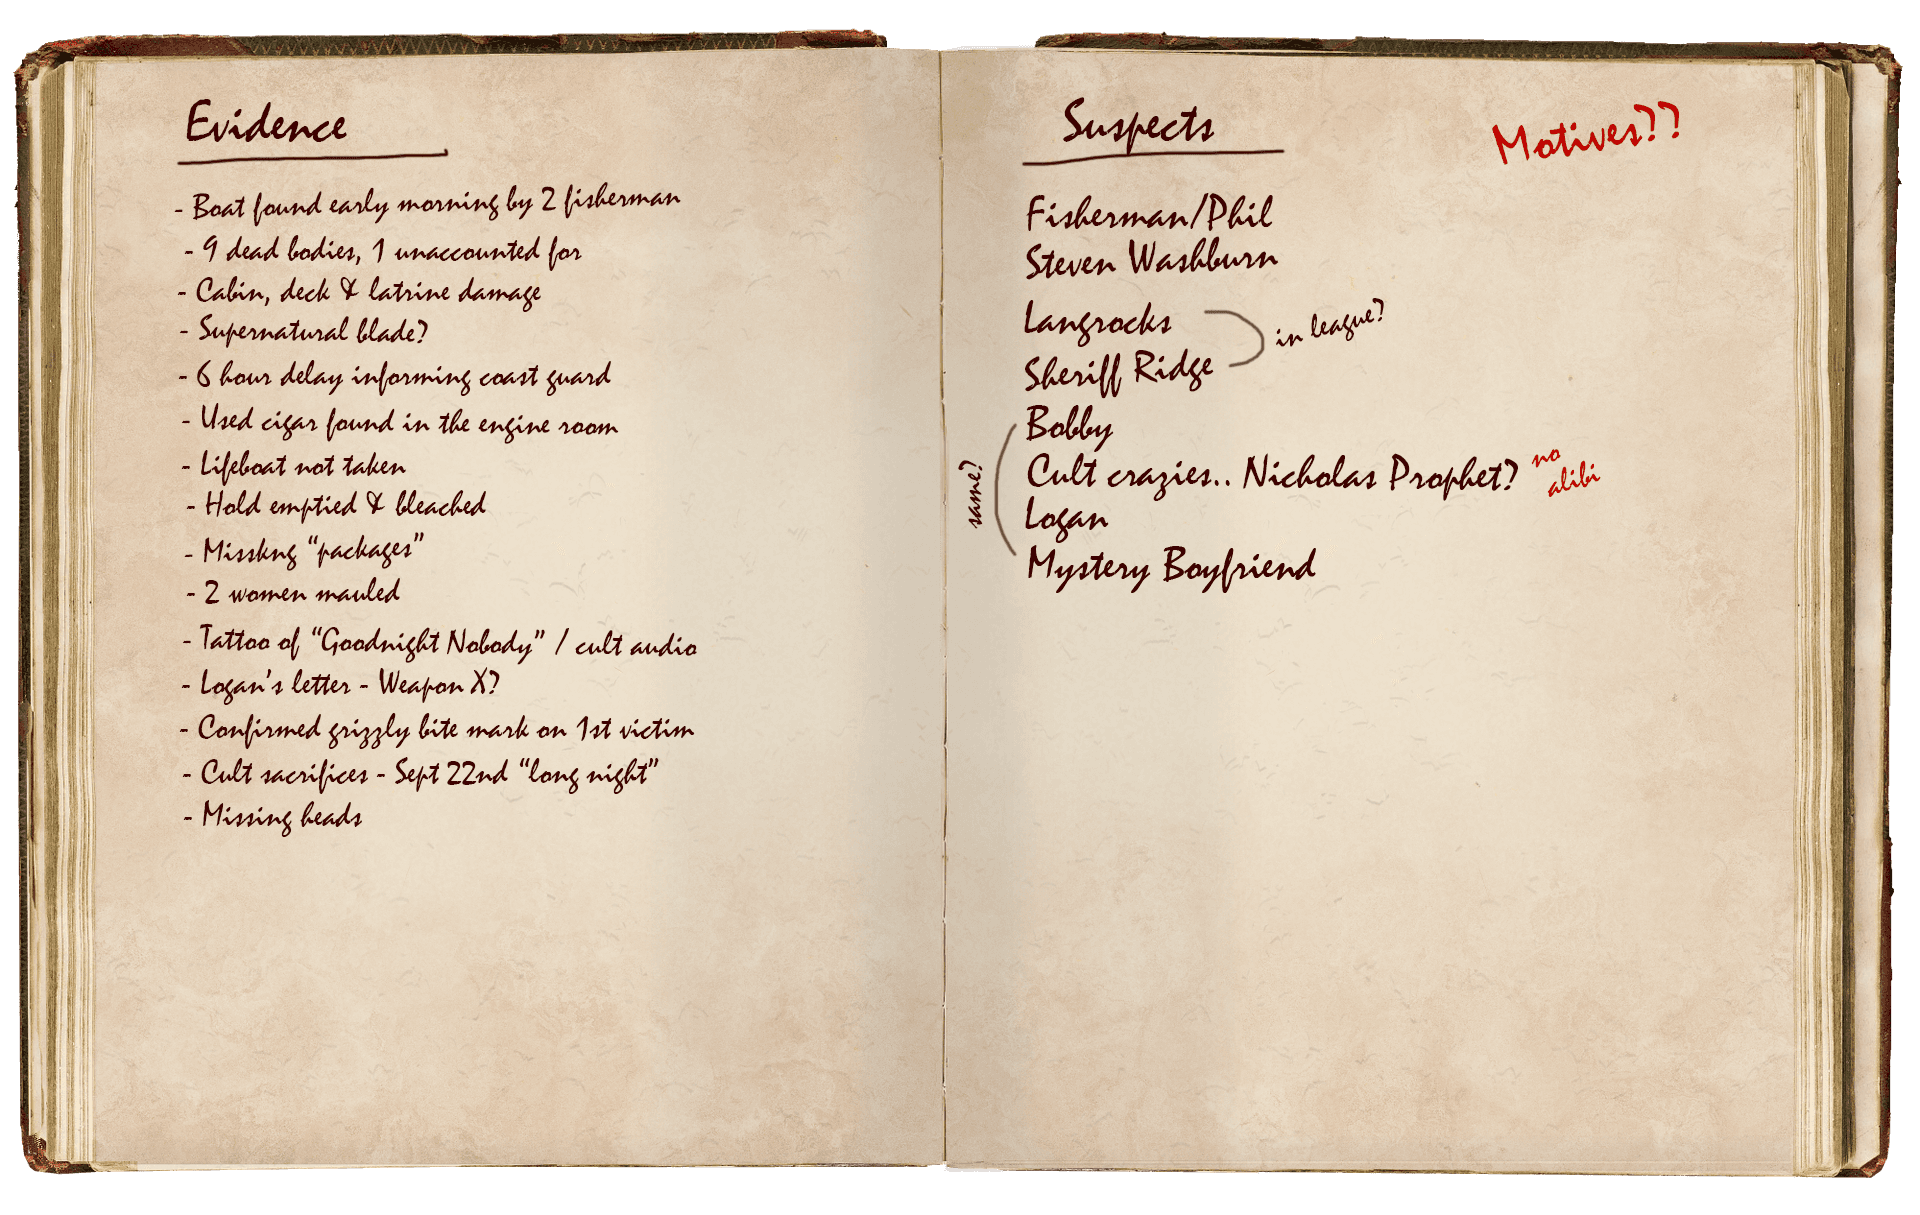 Evidence
- Boat found early morning by 2 fisherman
- 9 dead bodies, 1 unaccounted for
- Cabin, deck & latrine damage
- Supernatural blade?
- 6 hour delay informing coast guard
- Used cigar found in the engine room
- Lifeboat not taken
- Hold emptied & bleached
- Misskng "packages"
- 2 women mauled
- Tattoo of "Goodnight Nobody" / cult audio
- Logan's letter - Weapon X?
- Confirmed grizzly bite mark on 1st victim
- Cult sacrifices - Sept 22nd "long night"
- Missing heads
Suspects
Motives??
Fisherman/Phil
Steven Washburn
Langrocks
in league?
Sheriff Ridge
Bobby
Cult crazies.. Nicholas Prophet?
no
alibi
same?
Logan
Mystery Boyfriend